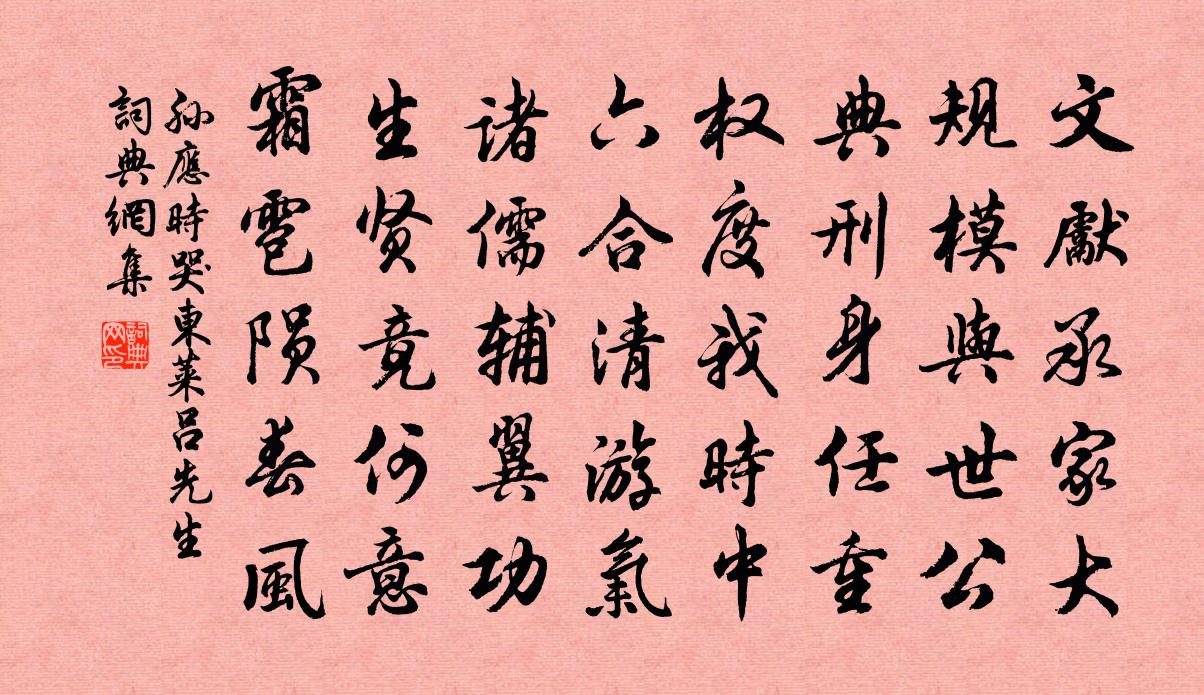 文獻承家大
規模與世公
典刑身任重
权度我時中
六合清游氣
诸儒辅翼功
生贤竟何意
霜雹陨春風
孙應時哭東萊呂先生
詞典網集
詞典网印